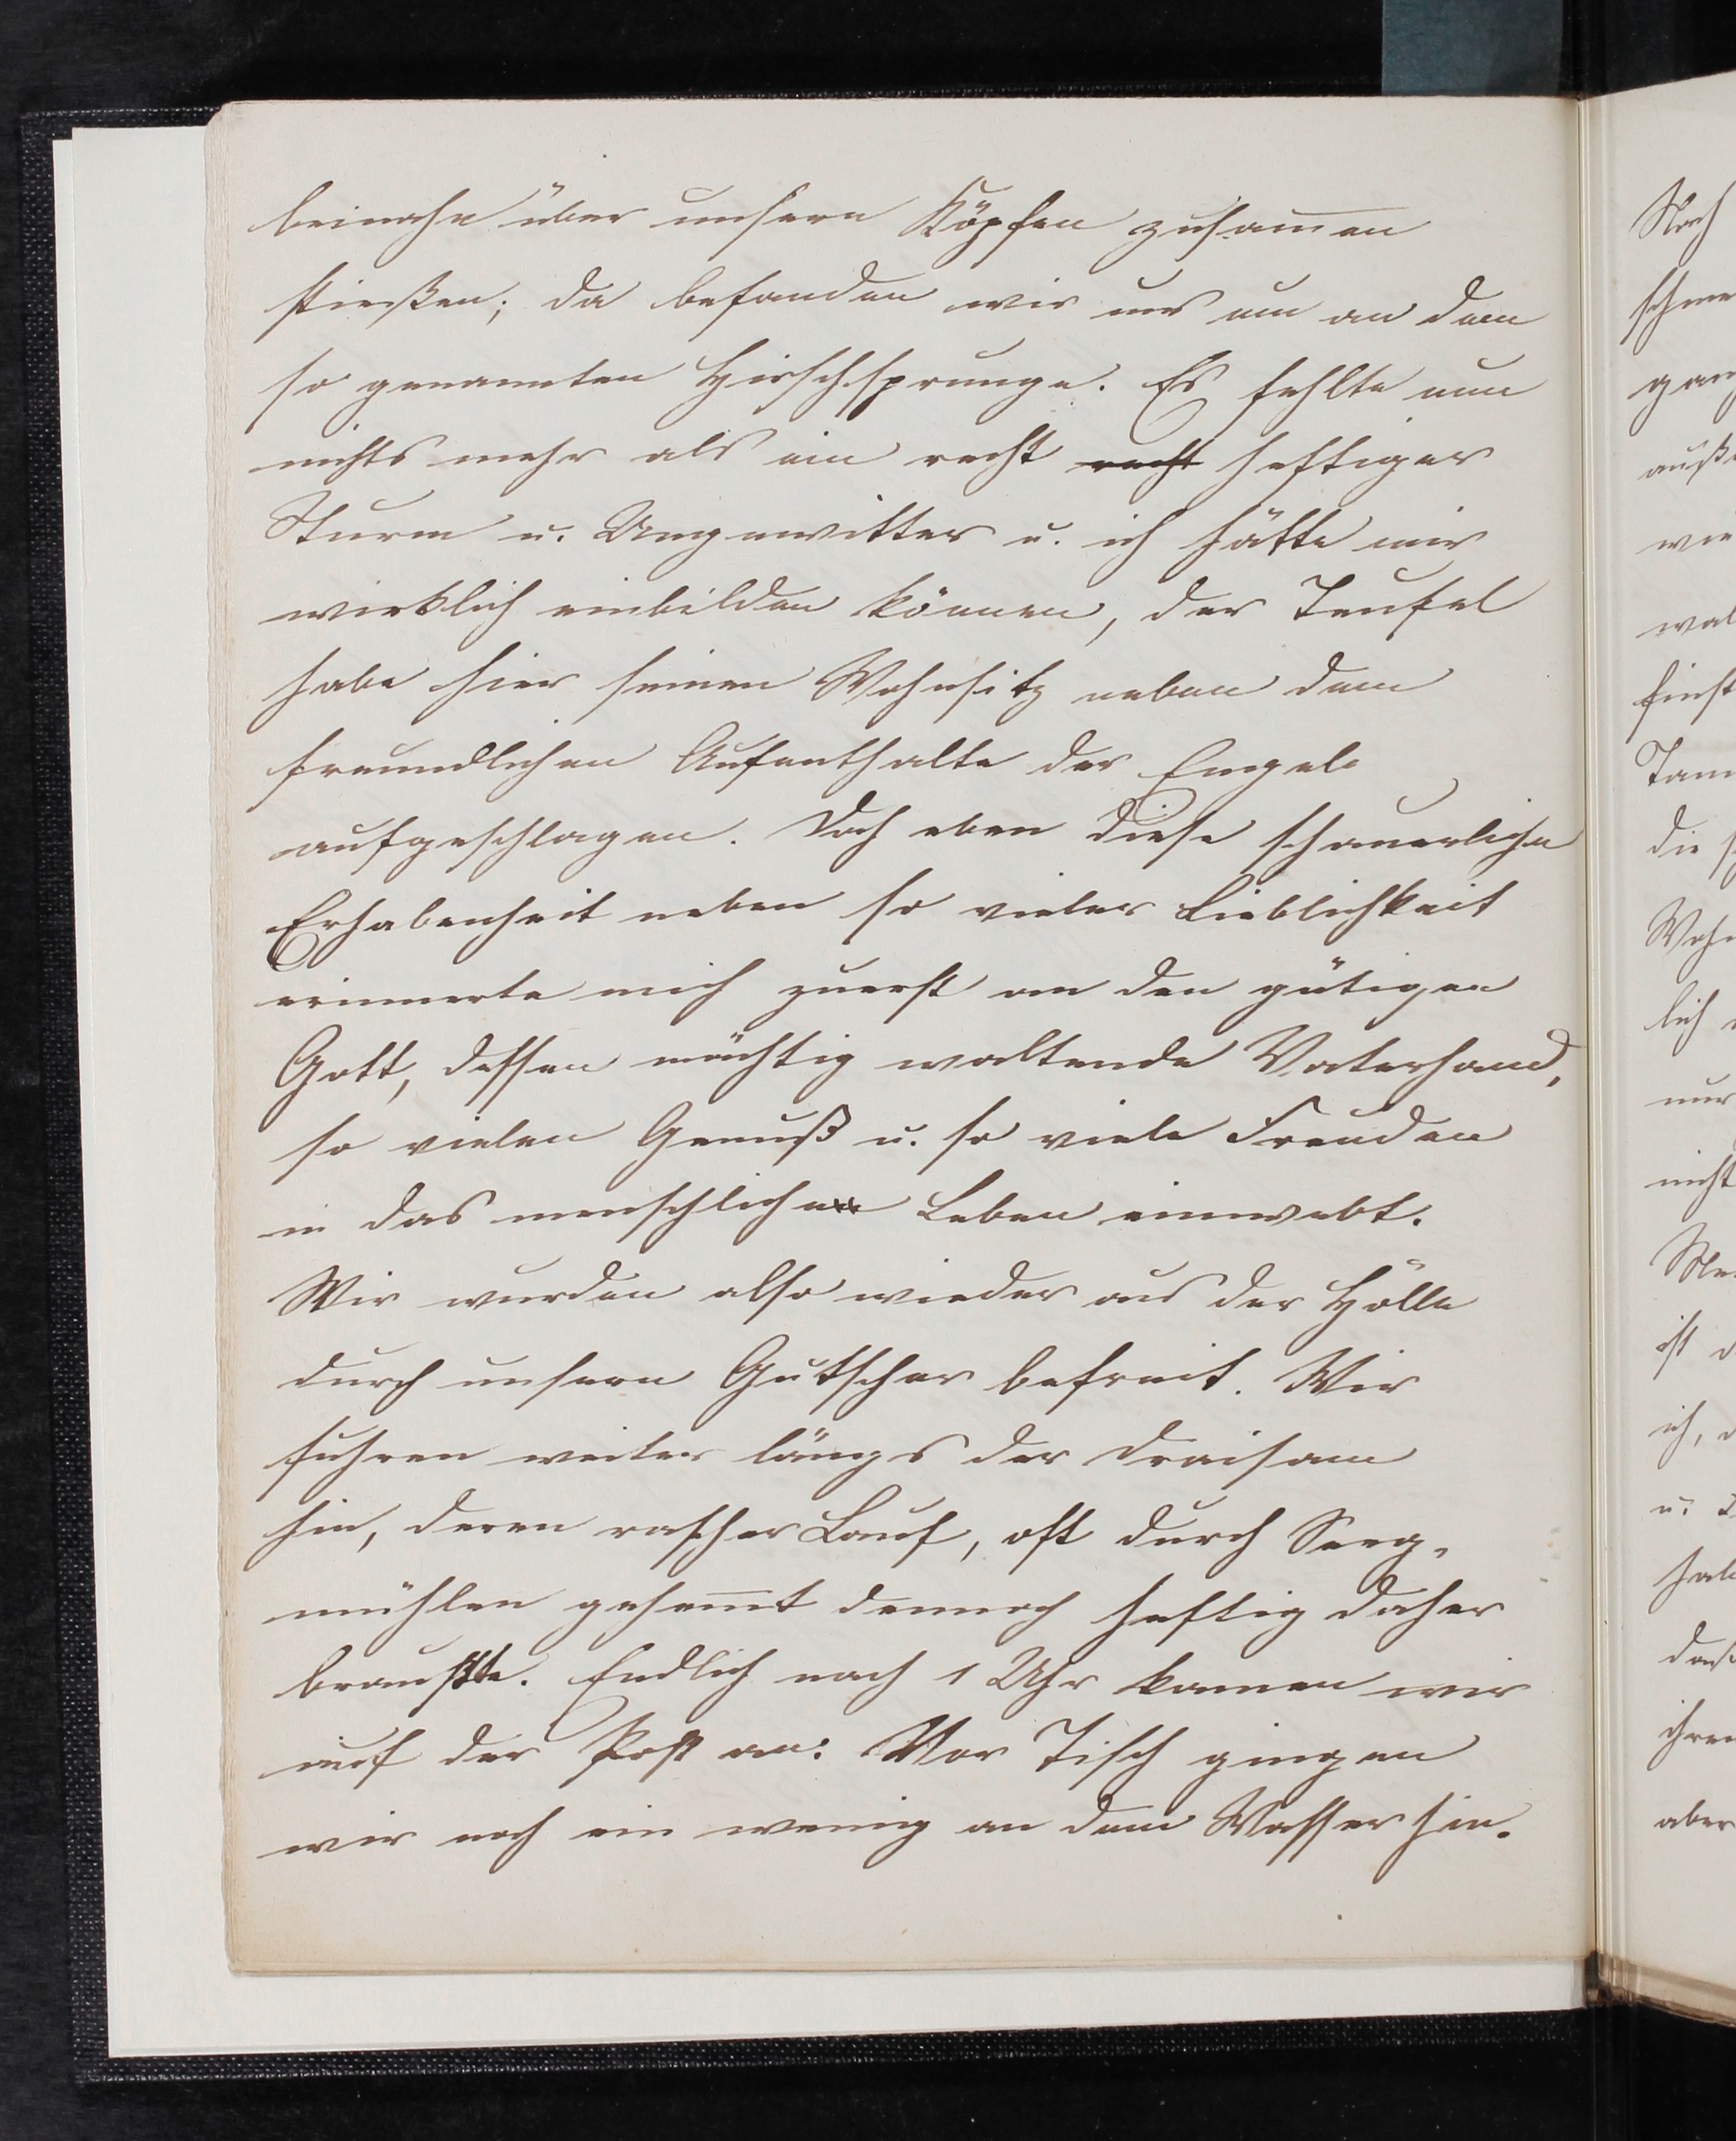 beinahe über unsern Köpfen zusam̅en
stießen; da befanden wir uns nun an dem
so genannten Hirschsprunge. Es fehlte nun
nichts mehr als ein recht recht heftiger
Sturm u. Ungewitter u. ich hätte mir
wirklich einbilden können, der Teufel
habe hier seinen Wohnsitz neben dem
freundlichen Aufenthalte der Engel
aufgeschlagen. Doch eben diese schauerliche
Erhabenheit neben so vieler Lieblichkeit
erinnerte mich zuerst an den gütigen
Gott, dessen mächtig waltende Vaterhand,
so vielen Genuß u. so viele Freuden
in das menschliche Leben einwebt.
Wir wurden also wieder aus der Hölle
durch unsern Gutscher befreit. Wir
fuhren weiter längs der Draisam
hin, deren rascher Lauf, oft durch Seeg-
mühlen gehem̅t dennoch heftig daher
brauste. Endlich nach 1 Uhr kamen wir
auf der Post an. Vor Tisch gingen
wir noch ein wenig an dem Wasser hin.
Noch
die
Wohn
lich
nur
nicht
ist
ich,
u.
daß
ihren
aber